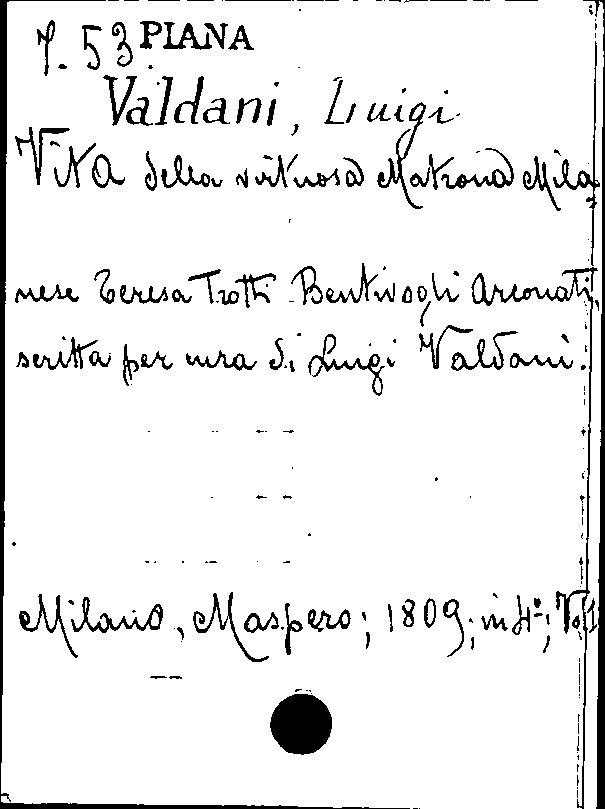 7. 53 PIANA
Valdani, Luigi
Vita della virtuosa Matrona Mila=
nese Teresa Trotti Bentivogli Arconati,
scritta per cura di Luigi Valdani.
Milano, Maspero; 1809; in 4°; V. 1